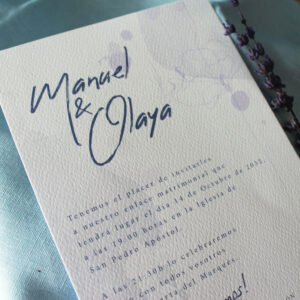 Manuel
&
Olaya
Tenemos el placer de invitarles
a nuestro enlace matrimonial que
tendrá lugar el día 14 de Octubre de 2022,
a las 19:00 horas en la Iglesia de
San Pedro Apóstol.
A las 21:30h lo celebraremos
con todos vosotros
del Marqués.